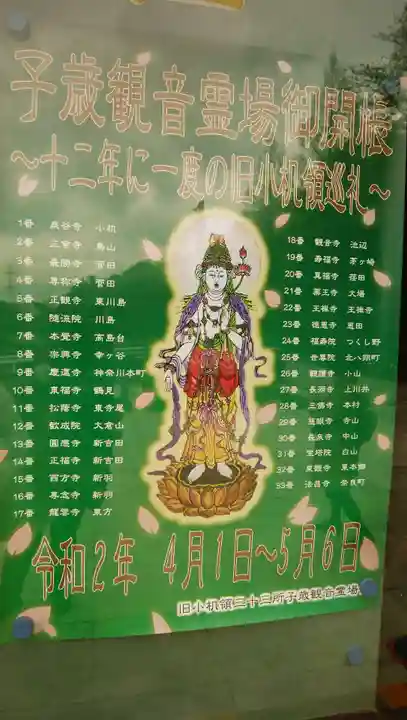 子歳観音霊場御開帳
～十二年に一度の旧小机領巡礼～
1番 泉谷寺 小机
2番 正観寺 鳥山
3番 最勝寺 菅田
4番 専称寺 菅田
5番 正観寺 東川島
6番 随流院 川島
7番 本覺寺 高島台
8番 宗興寺 幸ヶ谷
9番 慶運寺 神奈川本町
10番 東福寺 鶴見
11番 松蔭寺 東寺尾
12番 歓成院 大倉山
13番 圓應寺 新吉田
14番 正福寺 新吉田
15番 西方寺 新羽
16番 専念寺 新羽
17番 龍雲寺 東方
18番 観音寺 池辺
19番 壽福寺 茅ヶ崎
20番 真福寺 荏田
21番 薬王寺 大場
22番 王禅寺 王禅寺
23番 徳恩寺 恩田
24番 福寿院 つくし野
25番 世尊院 北八朔町
26番 観護寺 小山
27番 長源寺 上川井
28番 三佛寺 本村
29番 慈眼寺 寺山
30番 長泉寺 中山
31番 宝塔院 白山
32番 東観寺 東本郷
33番 法昌寺 奈良町
令和2年 4月1日～5月6日
旧小机領三十三所子歳観音霊場